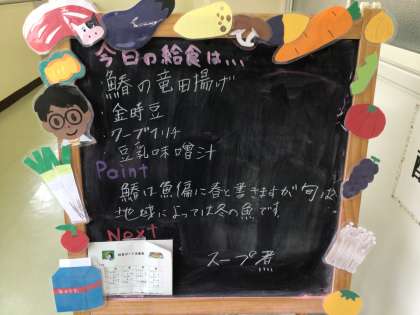 今日の給食は...
鰆の竜田揚げ
・金時豆
・
・豆乳味噌汁
Point
鰆は魚偏に春と書きますが旬は
地域によっては冬の魚です
Next
スープ煮